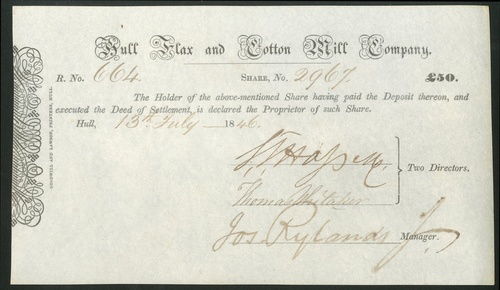 Hull Flax and Cotton Mill Company.
R. No. 664 Share, No. 2967 £50.
The Holder of the above-mentioned Share having paid the Deposit thereon, and
executed the Deed of Settlement, is declared the Proprietor of such Share.
Hull, 13th July 1846.
Two Directors.
Thomas Whitaker
Jos. Rylands Jr. Manager.
GOODWILL AND LAWSON, PRINTERS, HULL.